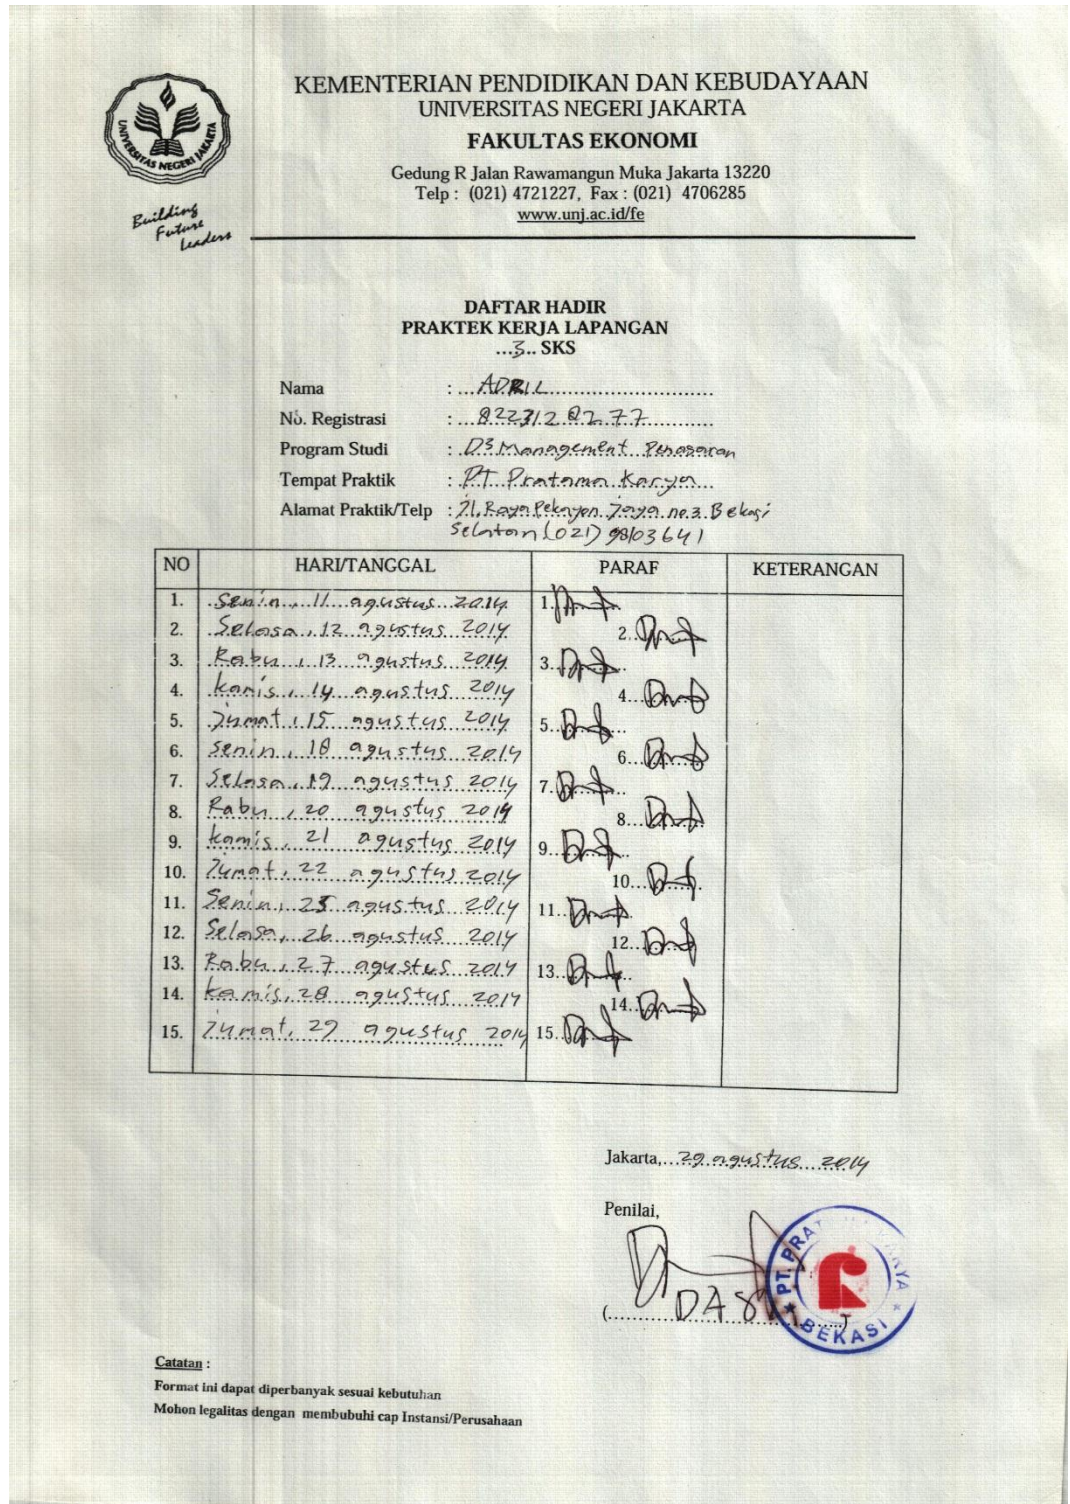 KEMENTERIAN PENDIDIKAN DAN KEBUDAYAAN
UNIVERSITAS NEGERI JAKARTA
FAKULTAS EKONOMI
Gedung R Jalan Rawamangun Muka Jakarta 13220
Telp : (021) 4721227, Fax : (021) 4706285
www.unj.ac.id/fe
UNIVERSITAS NEGERI JAKARTA
Building
Future
Leaders
DAFTAR HADIR
PRAKTEK KERJA LAPANGAN
...3.. SKS
Nama : ADRIL
No. Registrasi :
Program Studi : D3 Management
Tempat Praktik : PT Pratama Karya
Alamat Praktik/Telp : Jl. Raya Pekayon Jaya no.3 Bekasi
Selatan (021) 98103641
NO HARI/TANGGAL PARAF KETERANGAN
1. Senin, 11 agustus 2014 1.
2. Selasa, 12 agustus 2014 2.
3. Rabu, 13 agustus 2014 3.
4. kamis, 14 agustus 2014 4.
5. Jumat, 15 agustus 2014 5.
6. senin, 18 agustus 2014 6.
7. Selasa, 19 agustus 2014 7.
8. Rabu, 20 agustus 2014 8.
9. kamis, 21 agustus 2014 9.
10. Jumat, 22 agustus 2014 10.
11. Senin, 25 agustus 2014 11.
12. Selasa, 26 agustus 2014 12.
13. Rabu, 27 agustus 2014 13.
14. kamis, 28 agustus 2014 14.
15. Jumat, 29 agustus 2014 15.
Jakarta, 29 agustus 2014
Penilai,
PT. PRAT
BEKASI
Catatan :
Format ini dapat diperbanyak sesuai kebutuhan
Mohon legalitas dengan membubuhi cap Instansi/Perusahaan